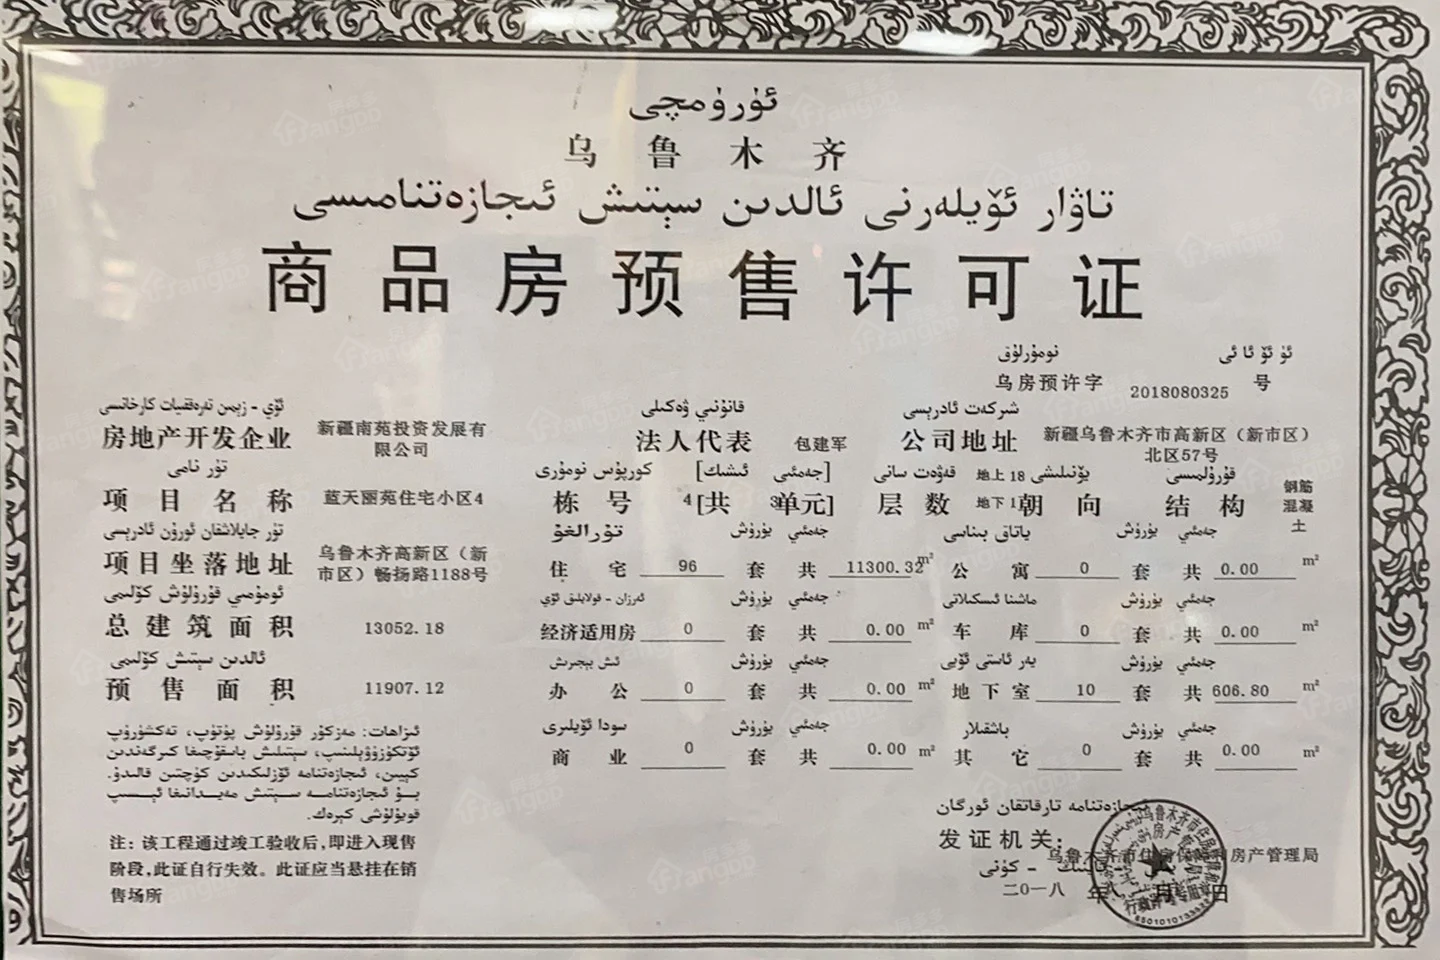 ئۈرۈمچى
乌鲁木齐
تاۋار ئۆيلەرنى ئالدىن سېتىش ئىجازەتنامىسى
商品房预售许可证
ئۈ ئۆ ئا ئى نومۇرلۇق
乌房预许字 2018080325 号
ئۆي - زېمىن تەرەققىيات كارخانىسى قانۇنىي ۋەكىلى شىركەت ئادرېسى
房地产开发企业 新疆南苑投资发展有限公司 法人代表 包建军 公司地址 新疆乌鲁木齐市高新区（新市区）北区57号
تۈر نامى كورپۇس نومۇرى [جەمئىي ئىشىك] قەۋەت سانى يۆنىلىشى قۇرۇلمىسى
项目名称 蓝天丽苑住宅小区4 栋号 4 [共 3单元] 层数 地上18 地下1 朝向 结构 钢筋混凝土
تۈر جايلاشقان ئورۇن ئادرېسى تۇرالغۇ يۈرۈش جەمئىي ياتاق بىناسى يۈرۈش جەمئىي
项目坐落地址 乌鲁木齐高新区（新市区）畅扬路1188号 住宅 96 套 共 11300.32 m² 公寓 0 套 共 0.00 m²
ئومۇمىي قۇرۇلۇش كۆلىمى ئەرزان - قولايلىق ئۆي يۈرۈش جەمئىي ماشىنا ئىسكىلاتى يۈرۈش جەمئىي
总建筑面积 13052.18 经济适用房 0 套 共 0.00 m² 车库 0 套 共 0.00 m²
ئالدىن سېتىش كۆلىمى ئىش بېجىرىش يۈرۈش جەمئىي يەر ئاستى ئۆيى يۈرۈش جەمئىي
预售面积 11907.12 办公 0 套 共 0.00 m² 地下室 10 套 共 606.80 m²
سودا ئۆيلىرى يۈرۈش جەمئىي باشقىلار يۈرۈش جەمئىي
商业 0 套 共 0.00 m² 其它 0 套 共 0.00 m²
ئىزاھات: مەزكۇر قۇرۇلۇش پۈتۈپ، تەكشۈرۈپ
ئۆتكۈزۈۋېلىنىپ، سېتىلىش باسقۇچىغا كىرگەندىن
كېيىن، ئىجازەتنامە ئۆزلىكىدىن كۈچتىن قالىدۇ.
بۇ ئىجازەتنامە سېتىش مەيدانىغا ئېسىپ
قويۇلۇشى كېرەك.
注：该工程通过竣工验收后,即进入现售
阶段,此证自行失效。此证应当悬挂在销
售场所
ئىجازەتنامە تارقاتقان ئورگان
发证机关：
乌鲁木齐市住房保障和房产管理局
يىلى ئاينىڭ - كۈنى
二〇一八 年 八 月 日